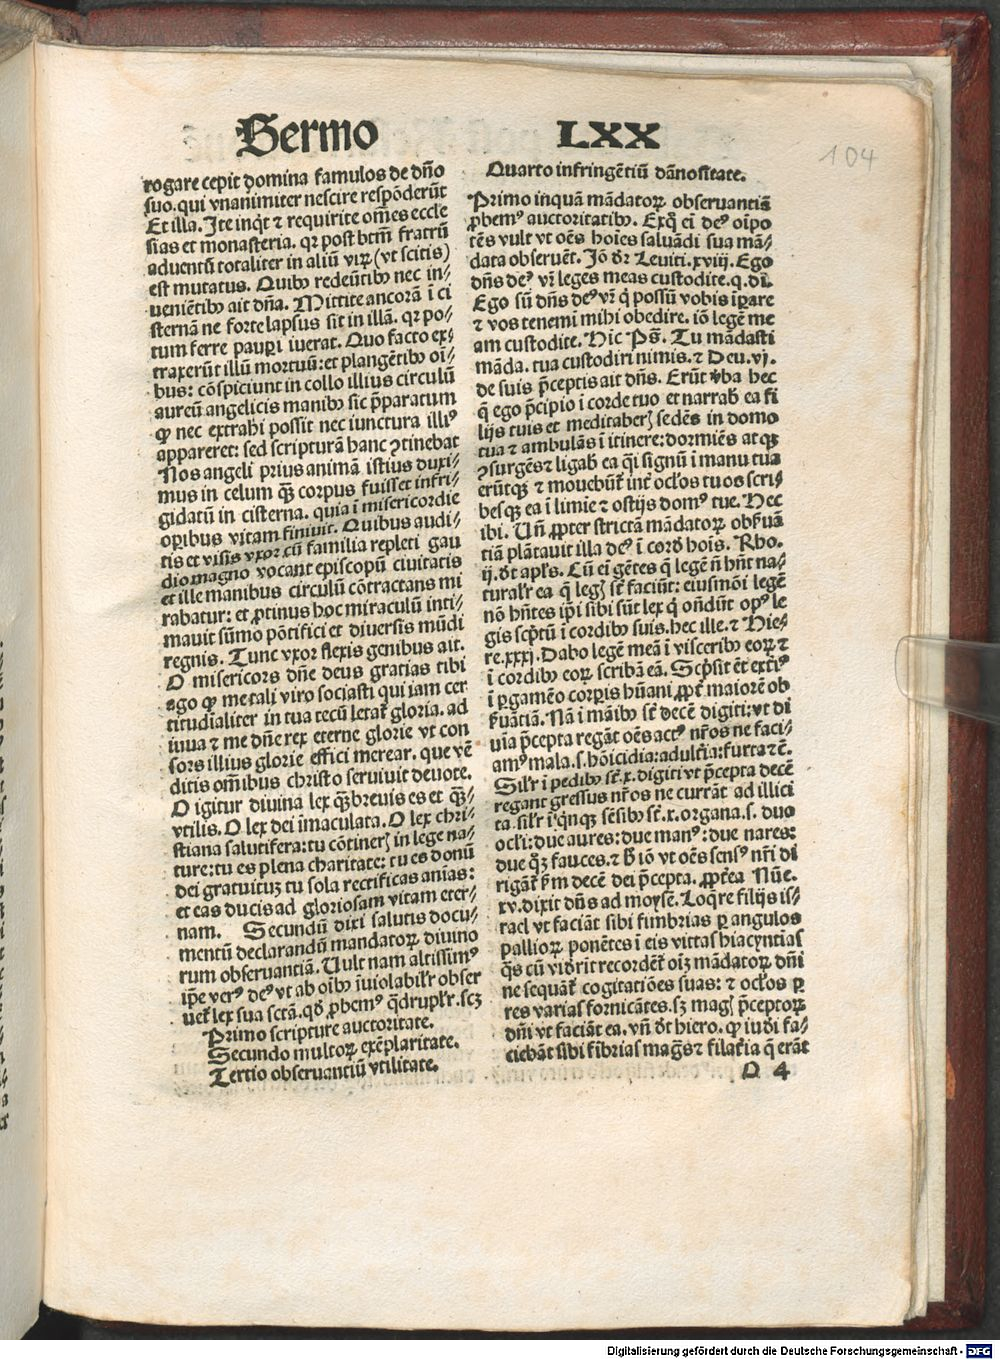 Sermo LXX
104
rogare cepit domina famulos de dño
suo. qui vnanimiter nescire respōderūt
Et illa. Ite inq̇t ⁊ requirite om̄es eccle
sias et monasteria. qꝛ post btm̄ fratrū
aduentū totaliter in aliū viꝝ (vt scitis)
est mutatus. Quibꝰ redeūtibꝰ nec in⸗
ueniētibꝰ ait dña. Mittite ancorā ī ci
sternā ne forte lapsus sit in illā. qꝛ po⸗
tum ferre pauꝑi iuerat. Quo facto ex⸗
traxerūt illū mortuū: et plangētibꝰ oī⸗
bus: cōspiciunt in collo illius circulū
aureū angelicis manibꝰ sic p̄paratum
ꝙ nec extrahi possit nec iunctura illiꝰ
appareret: sed scripturā hanc ꝯtinebat
Nos angeli prius animā istius duxi⸗
mus in celum qꝫ̄ corpus fuisset infri⸗
gidatū in cisterna. quia ī misericordie
oꝑibus vitam finiuit. Quibus audi⸗
tis et visis vxor cū familia repleti gau
dio magno vocant episcopū ciuitatis
et ille manibus circulū cōtractans mi
rabatur: et ꝓtinus hoc miraculū inti⸗
mauit sūmo pōtifici et diuersis mūdi
regnis. Tunc vxor flexis genibus ait.
O misericors dñe deus gratias tibi
ago ꝙ me tali viro sociasti qui iam cer
titudīaliter in tua tecū letat̄ gloria. ad
iuua ⁊ me dñe rex eterne glorie vt con
sors illius glorie effici merear. que vē
ditis om̄ibus christo seruiuit deuote.
O igitur diuina lex qꝫ̄ breuis es et qꝫ̄⸗
vtilis. O lex dei īmaculata. O lex chri⸗
stiana salutifera: tu cōtinerꝭ in lege na⸗
ture: tu es plena charitate: tu es donū
dei gratuituꝫ tu sola rectificas aniās:
et eas ducis ad gloriosam vitam eter⸗
nam. Secundū dixi salutis docu⸗
mentū declarandū mandatoꝝ diuino
rum obseruantiā. Uult nam altissimꝰ
ip̄e verꝰ deꝰ vt ab oībꝰ īuiolabilr̄ obser
uet̄ lex sua sctā. qd̄ ꝓbemꝰ q̄druplr̄. scꝫ
Primo scripture auctoritate.
Secundo multoꝝ exēplaritate.
Tertio obseruantiū vtilitate.
Quarto infringētiū dānositate.
Primo inquā mādatoꝝ obseruantiā
ꝓbemꝰ auctoritatibꝰ. Exq̄ ei deꝰ oīpo
tēs vult vt oēs hoīes saluādi sua mā⸗
data obseruēt. Jō dꝛ Leuiti. xviij. Ego
dñs deꝰ vr̄ leges meas custodite. q. dī.
Ego sū dñs deꝰ vr̄ q̇ possū vobis īꝑare
⁊ vos tenemī mihi obedire. iō legē me
am custodite. Hic Pṡ. Tu mādasti
māda. tua custodiri nimis. ⁊ Deu. vj.
de suis p̄ceptis ait dñs. Erūt v̄ba hec
q̄ ego p̄cipio ī corde tuo et narrab̄ ea fi
lijs tuis et meditaberꝭ sedēs in domo
tua ⁊ ambulās ī itinere: dormiēs atqꝫ
ꝯsurgēs ⁊ ligab̄ ea q̄i signū ī manu tua
erūtqꝫ ⁊ mouebūt̄ int̄ ocl̄os tuos scri⸗
besqꝫ ea ī limie ⁊ ostijs domꝰ tue. Hec
ibi. Un̄ ꝓpter strictā mādatoꝝ obẜuā
tiā plātauit illa deꝰ ī cord̄ hoīs. Rho.
ij. dt̄ apl̄s. Cū ei gētes q̄ legē n̄ hn̄t na⸗
turalr̄ ea q̄ legꝭ st̄ faciūt: eiusmōi legē
nō hn̄tes ip̄i sibi sūt lex q̇ on̄dūt opꝰ le
gis scp̄tū ī cordibꝰ suis. hec ille. ⁊ Hie⸗
re. xxxj. Dabo legē meā ī visceribꝰ eoꝝ ⁊
ī cordibꝰ eoꝝ scribā eā. Scp̄sit ēt extiꝰ
ī ꝑgamēo corꝑis hūani ꝓpt̄ maiorē ob
ẜuātiā. Nā ī māibꝰ st̄ decē digiti: vt di
uīa p̄cepta regāt oēs actꝰ nr̄os ne faci⸗
amꝰ mala. s. hōicidia: adult̄ia: furta ⁊c̄.
Silr̄ ī pedibꝰ st̄. x. digiti vt p̄cepta decē
regant gressus nr̄os ne currāt ad illici
ta. silr̄ ī q̇nqꝫ sēsibꝰ st̄. x. organa. s. duo
ocl̄i: due aures: due manꝰ: due nares:
due qꝫ fauces. ⁊ B iō vt oēs sensꝰ nr̄i di
rigāt̄ ẜm decē dei p̄cepta. ꝓpt̄ea Nūe.
xv. dixit dñs ad moysē. Loq̄re filijs is⸗
rael vt faciāt sibi fimbrias ꝑ angulos
pallioꝝ ponētes ī eis vittas hiacyntīas
q̄s cū vid̄rīt recordēt̄ oīꝫ mādatoꝝ dn̄i
ne sequāt̄ cogitatiōes suas: ⁊ ocl̄os ꝑ
res varias fornicātes. sꝫ magꝭ p̄ceptoꝝ
dn̄i vt faciāt ea. vn̄ dt̄ hiero. ꝙ iud̄i fa⸗
ciebāt sibi fībrias maḡs ⁊ filat̄ia q̄ erāt
O 4
Digitalisierung gefördert durch die Deutsche Forschungsgemeinschaft - DFG